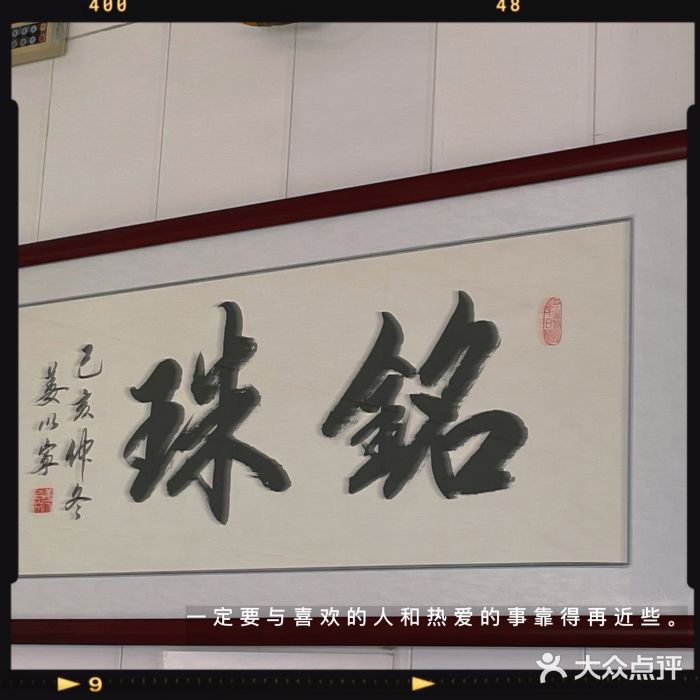 400 48
銘珠
己亥仲冬
姜以寧
一定要与喜欢的人和热爱的事靠得再近些。
9
大众点评